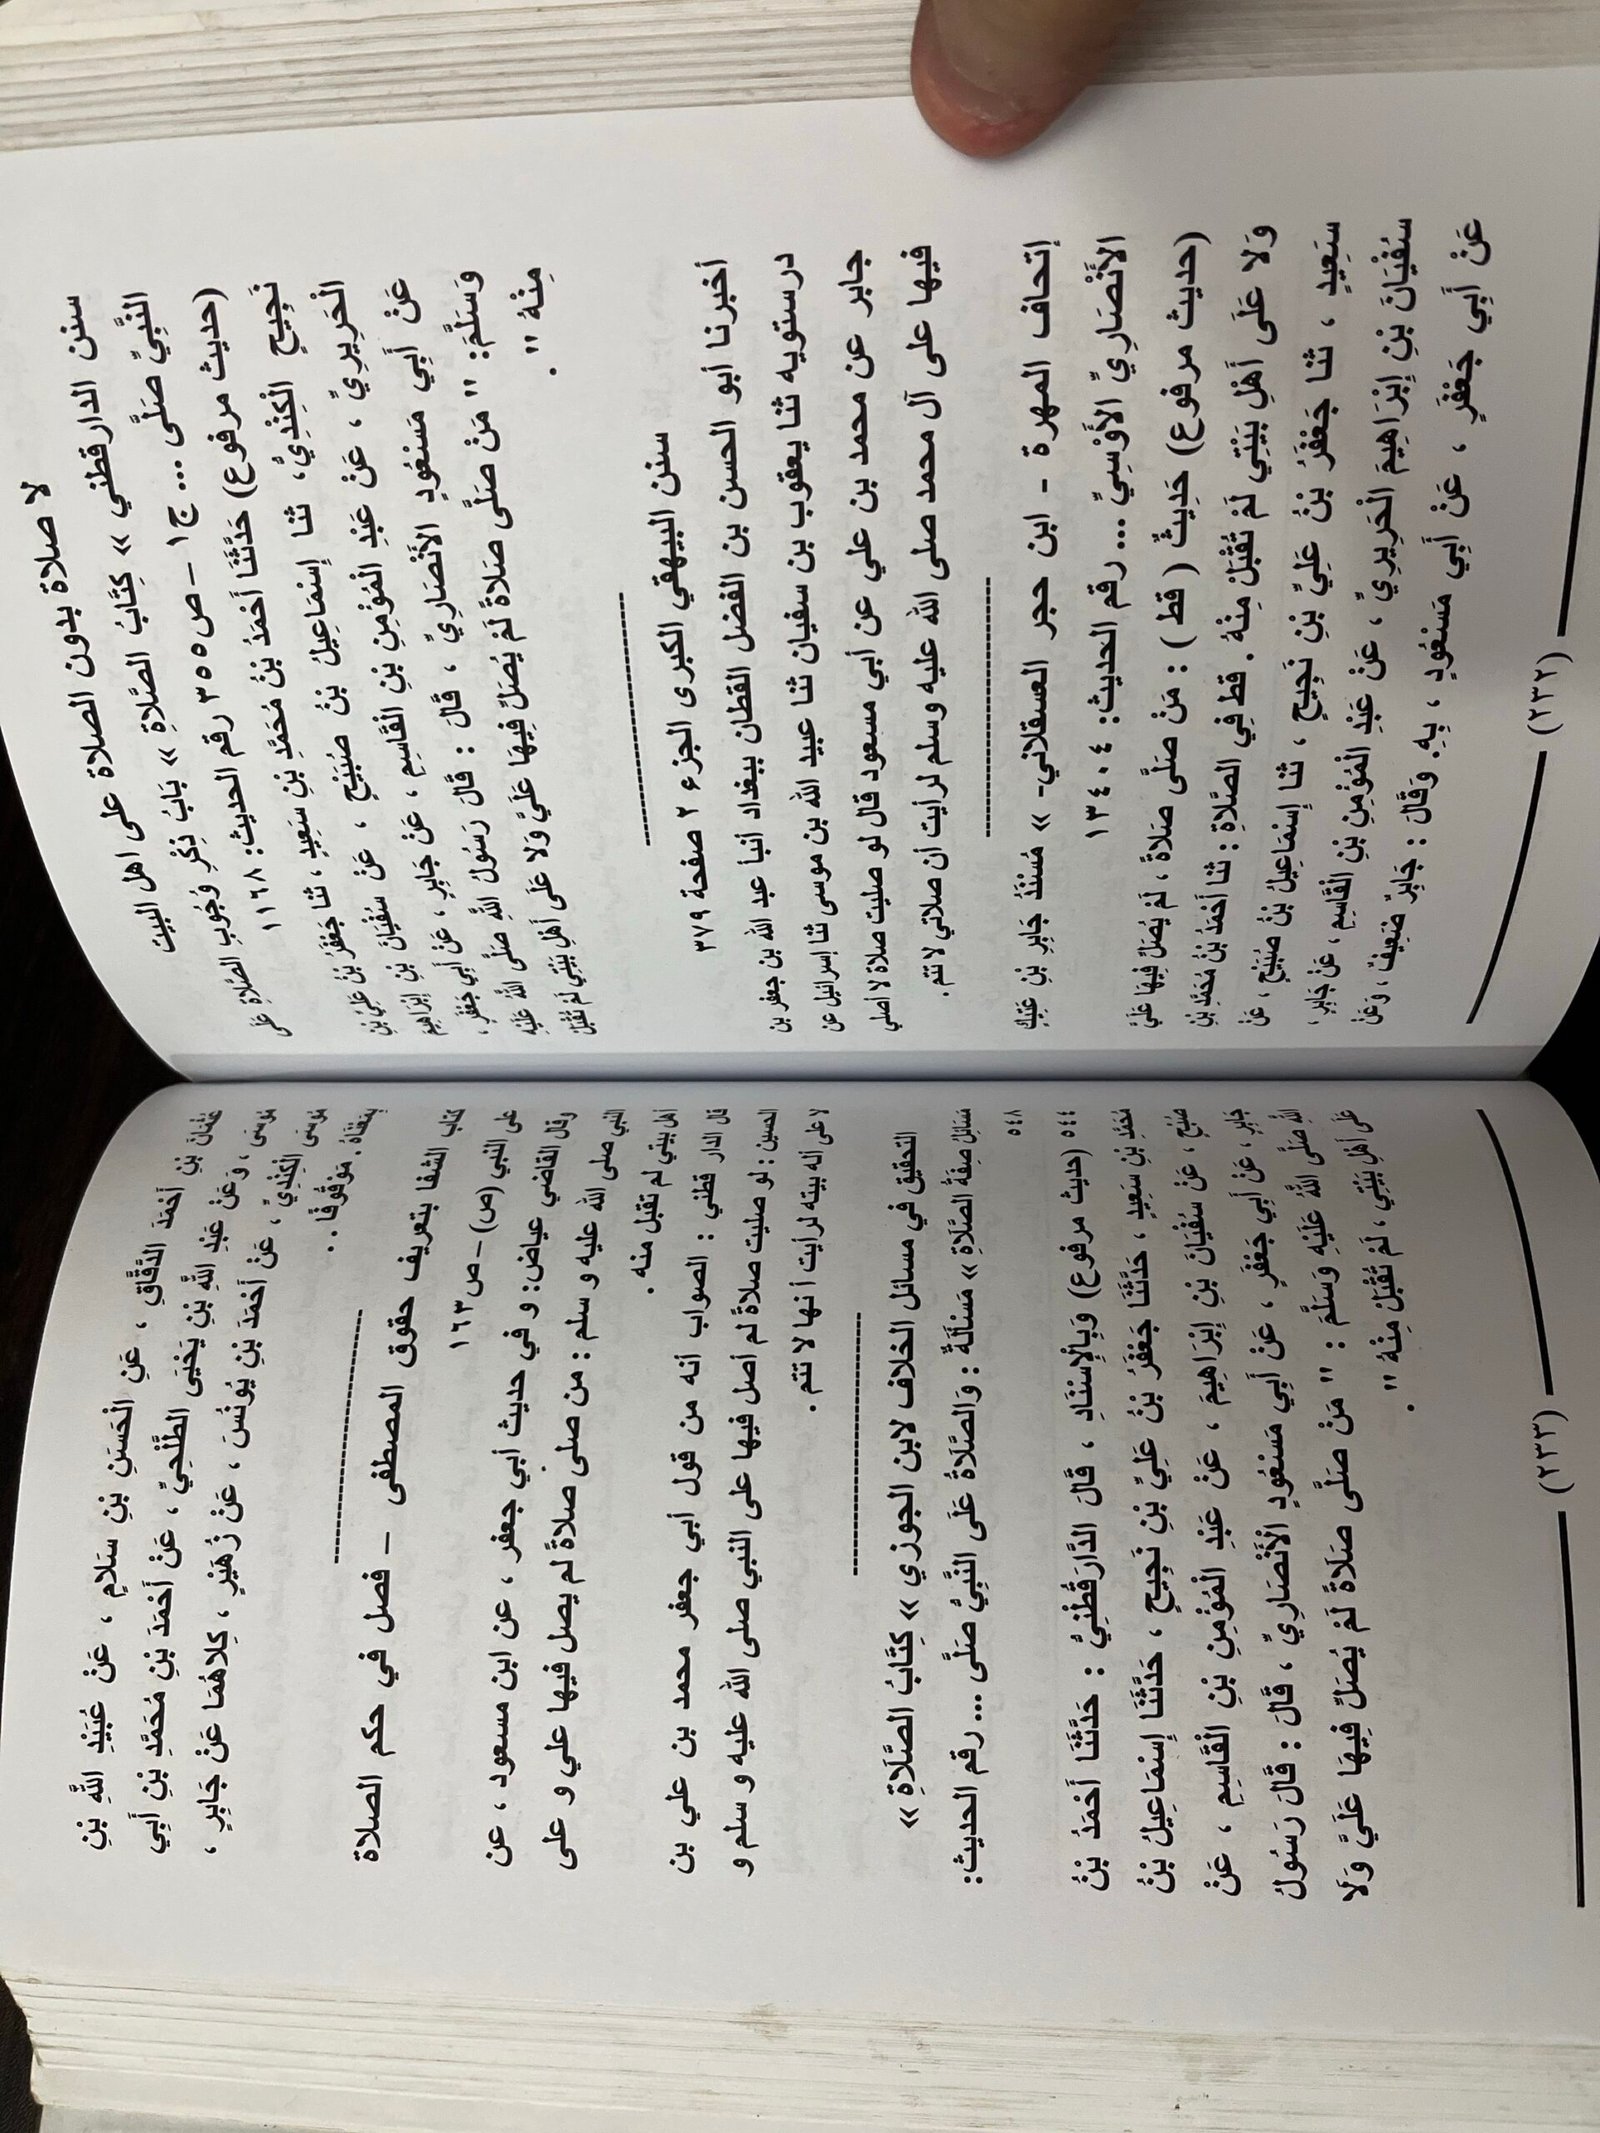 لا صلاة بدون الصلاة على اهل البيت
سنن الدارقطني » كِتَابُ الصَّلاةِ » بَابُ ذِكْرِ وُجُوبِ الصَّلاةِ عَلَى
النَّبِيِّ صَلَّى ... ج١ – ص٣٥٥ رقم الحديث: ١١٦٨
(حديث مرفوع) حَدَّثَنَا أَحْمَدُ بْنُ مُحَمَّدِ بْنِ سَعِيدٍ ، ثنا جَعْفَرُ بْنُ عَلِيِّ بْنِ
نَجِيحٍ الْكِنْدِيُّ، ثنا إِسْمَاعِيلُ بْنُ صُبَيْحٍ ، عَنْ سُفْيَانَ بْنِ إِبْرَاهِيمَ
الْحَرِيرِيِّ ، عَنْ عَبْدِ الْمُؤْمِنِ بْنِ الْقَاسِمِ ، عَنْ جَابِرٍ ، عَنْ أَبِي جَعْفَرٍ ،
عَنْ أَبِي مَسْعُودٍ الأَنْصَارِيِّ ، قَالَ : قَالَ رَسُولُ اللَّهِ صَلَّى اللَّهُ عَلَيْهِ
وَسَلَّمَ: " مَنْ صَلَّى صَلاةً لَمْ يُصَلِّ فِيهَا عَلَيَّ وَلا عَلَى أَهْلِ بَيْتِي لَمْ تُقْبَلْ
مِنْهُ " .
سنن البيهقي الكبرى الجزء ٢ صفحة ٣٧٩
أخبرنا أبو الحسن بن الفضل القطان ببغداد أنبأ عبد الله بن جعفر بن
درستويه ثنا يعقوب بن سفيان ثنا عبيد الله بن موسى ثنا إسرائيل عن
جابر عن محمد بن علي عن أبي مسعود قال لو صليت صلاة لا أصلي
فيها على آل محمد صلى الله عليه وسلم لرأيت أن صلاتي لا تتم .
إتحاف المهرة - ابن حجر العسقلاني- » مُسْنَدُ جَابِرِ بْنِ عَتِيكٍ
الأَنْصَارِيِّ الأَوْسِيِّ ... رقم الحديث: ١٣٤٠٤
(حديث مرفوع) حَدِيثٌ ( قط ) : مَنْ صَلَّى صَلاةً ، لَمْ يُصَلِّ فِيهَا عَلَيَّ
وَلا عَلَى أَهْلِ بَيْتِي لَمْ تُقْبَلْ مِنْهُ . قط فِي الصَّلاةِ : ثنا أَحْمَدُ بْنُ مُحَمَّدِ بْنِ
سَعِيدٍ ، ثنا جَعْفَرُ بْنُ عَلِيِّ بْنِ نَجِيحٍ ، ثنا إِسْمَاعِيلُ بْنُ صُبَيْحٍ ، عَنْ
سُفْيَانَ بْنِ إِبْرَاهِيمَ الْحَرِيرِيِّ ، عَنْ عَبْدِ الْمُؤْمِنِ بْنِ الْقَاسِمِ ، عَنْ جَابِرٍ ،
عَنْ أَبِي جَعْفَرٍ ، عَنْ أَبِي مَسْعُودٍ ، بِهِ. وَقَالَ : جَابِرٌ ضَعِيفٌ ، وَعَنْ
(٢٣٢)
عُثْمَانَ بْنِ أَحْمَدَ الدَّقَّاقِ ، عَنِ الْحَسَنِ بْنِ سَلامٍ ، عَنْ عُبَيْدِ اللَّهِ بْنِ
مُوسَى ، وَعَنْ عَبْدِ اللَّهِ بْنِ يَحْيَى الطَّلْحِيِّ ، عَنْ أَحْمَدَ بْنِ مُحَمَّدِ بْنِ أَبِي
مُوسَى الْكِنْدِيِّ ، عَنْ أَحْمَدَ بْنِ يُونُسَ ، عَنْ زُهَيْرٍ ، كِلاهُمَا عَنْ جَابِرٍ ،
بِمَعْنَاهُ. مَوْقُوفًا . .
كتاب الشفا بتعريف حقوق المصطفى – فصل في حكم الصلاة
على النبي (ص) –ص١٦٣
وقال القاضي عياض: و في حديث أبي جعفر ، عن ابن مسعود ، عن
النبي صلى الله عليه و سلم : من صلى صلاةً لم يصل فيها علي و على
اهل بيتي لم تقبل منه .
قال الدار قطني : الصواب أنه من قول أبي جعفر محمد بن علي بن
الحسين : لو صليت صلاةً لم أصل فيها على النبي صلى الله عليه و سلم و
لا على اله بيته لرأيت أنها لا تتم .
التحقيق في مسائل الخلاف لابن الجوزي » كِتَابُ الصَّلَاةِ »
مَسَائِلُ صِفَةُ الصَّلَاةِ » مَسْأَلَةٌ : وَالصَّلَاةُ عَلَى النَّبِيِّ صَلَّى ... رقم الحديث:
٥٤٨
٥٤٤ (حديث مرفوع) وَبِالْإِسْنَادِ ، قَالَ الدَّارَقُطْنِيُّ : حَدَّثَنَا أَحْمَدُ بْنُ
مُحَمَّدِ بْنِ سَعِيدٍ ، حَدَّثَنَا جَعْفَرُ بْنُ عَلِيِّ بْنِ نَجِيحٍ ، حَدَّثَنَا إِسْمَاعِيلُ بْنُ
صُبَيْحٍ ، عَنْ سُفْيَانَ بْنِ إِبْرَاهِيمَ ، عَنْ عَبْدِ الْمُؤْمِنِ بْنِ الْقَاسِمِ ، عَنْ
جَابِرٍ ، عَنْ أَبِي جَعْفَرٍ ، عَنْ أَبِي مَسْعُودٍ الْأَنْصَارِيِّ ، قَالَ : قَالَ رَسُولُ
اللَّهِ صَلَّى اللَّهُ عَلَيْهِ وَسَلَّمَ : " مَنْ صَلَّى صَلَاةً لَمْ يُصَلِّ فِيهَا عَلَيَّ وَلَا
عَلَى أَهْلِ بَيْتِي ، لَمْ تُقْبَلْ مِنْهُ " .
(٢٣٣)